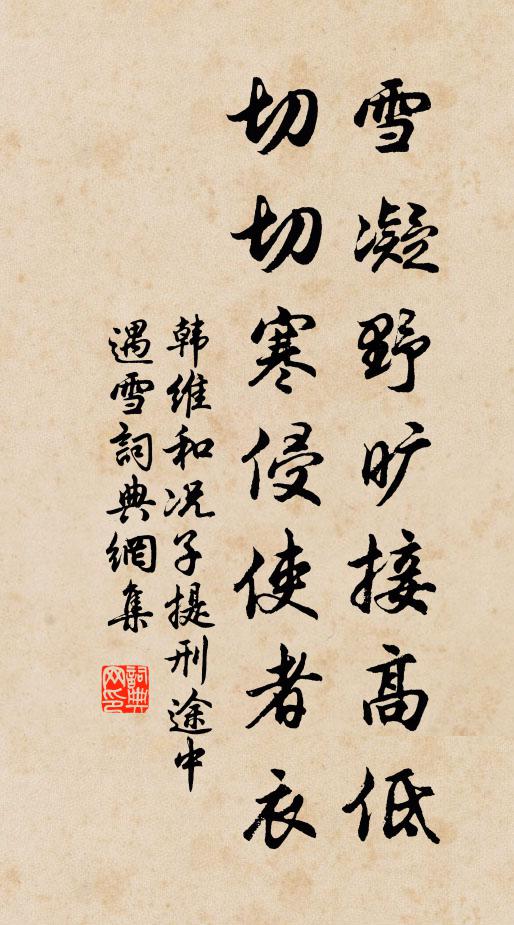 雪凝野旷接高低
切切寒侵使者衣
韩维和况子提刑途中
遇雪詞典網集
詞典
网印